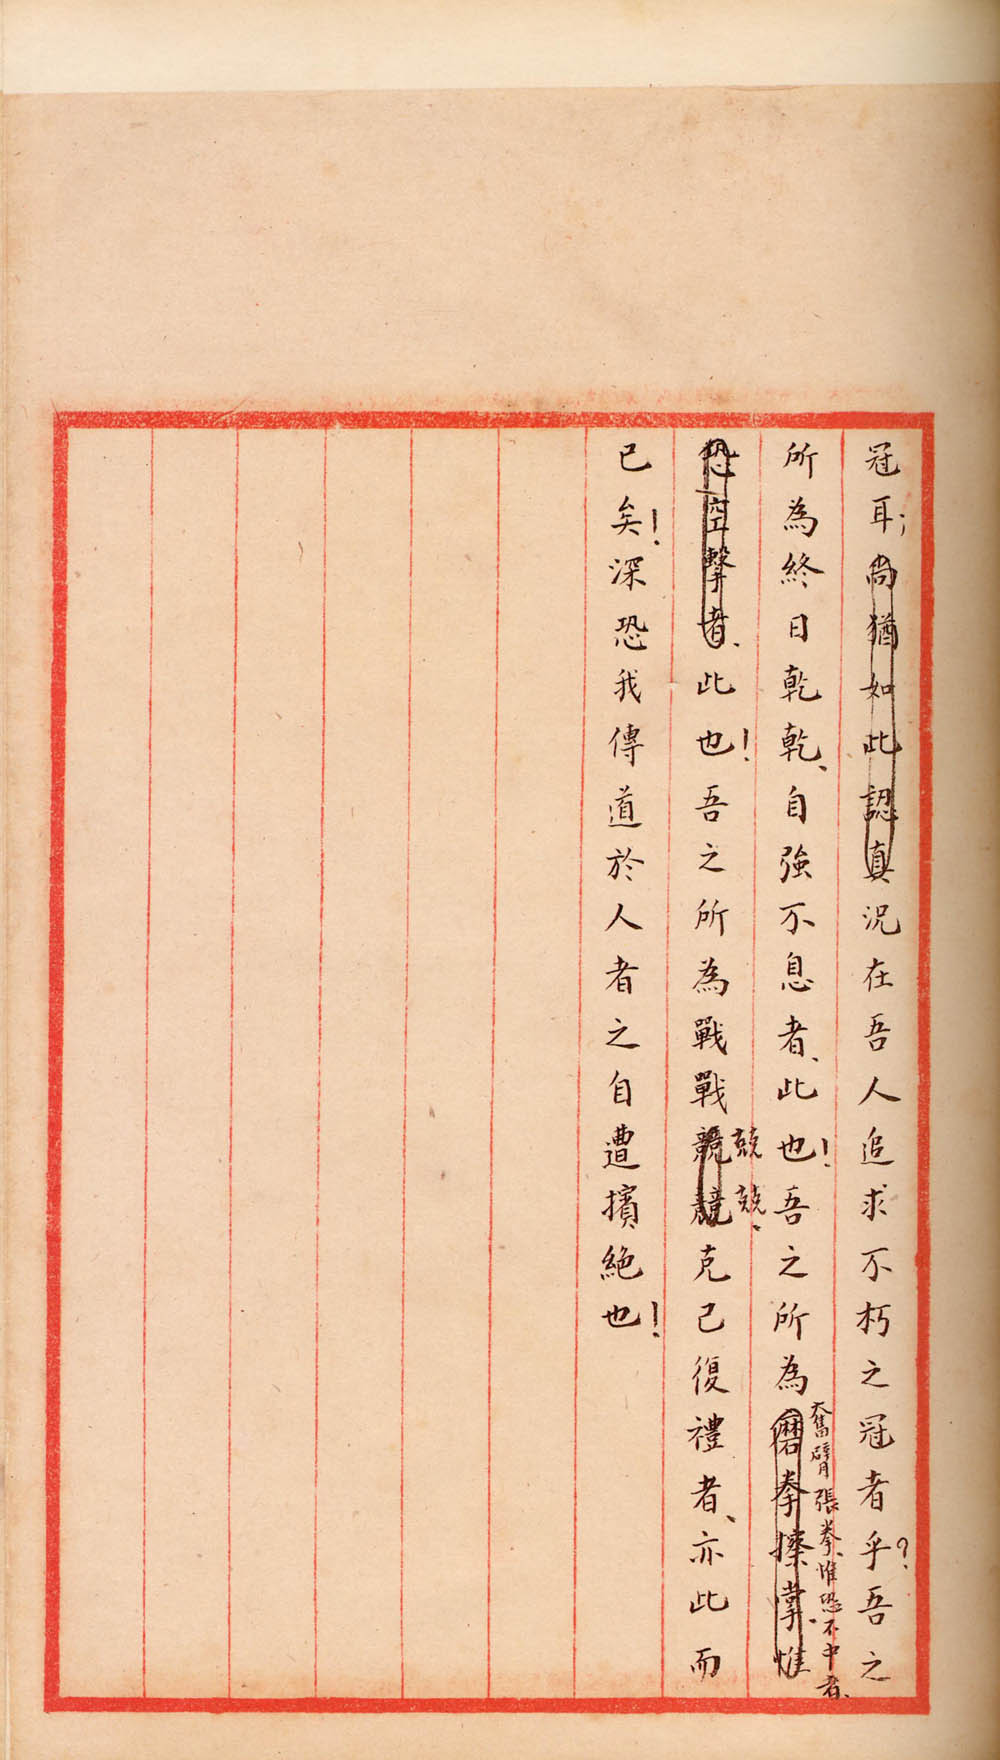 冠耳；尚猶如此認真況在吾人追求不朽之冠者乎？吾之
所為終日乾乾、自強不息者、此也！吾之所為磨拳擦掌、惟
奮臂張拳、惟恐不中者、
恐空擊者、此也！吾之所為戰戰競競克己復禮者、亦此而
兢兢、
已矣！深恐我傳道於人者之自遭擯絕也！